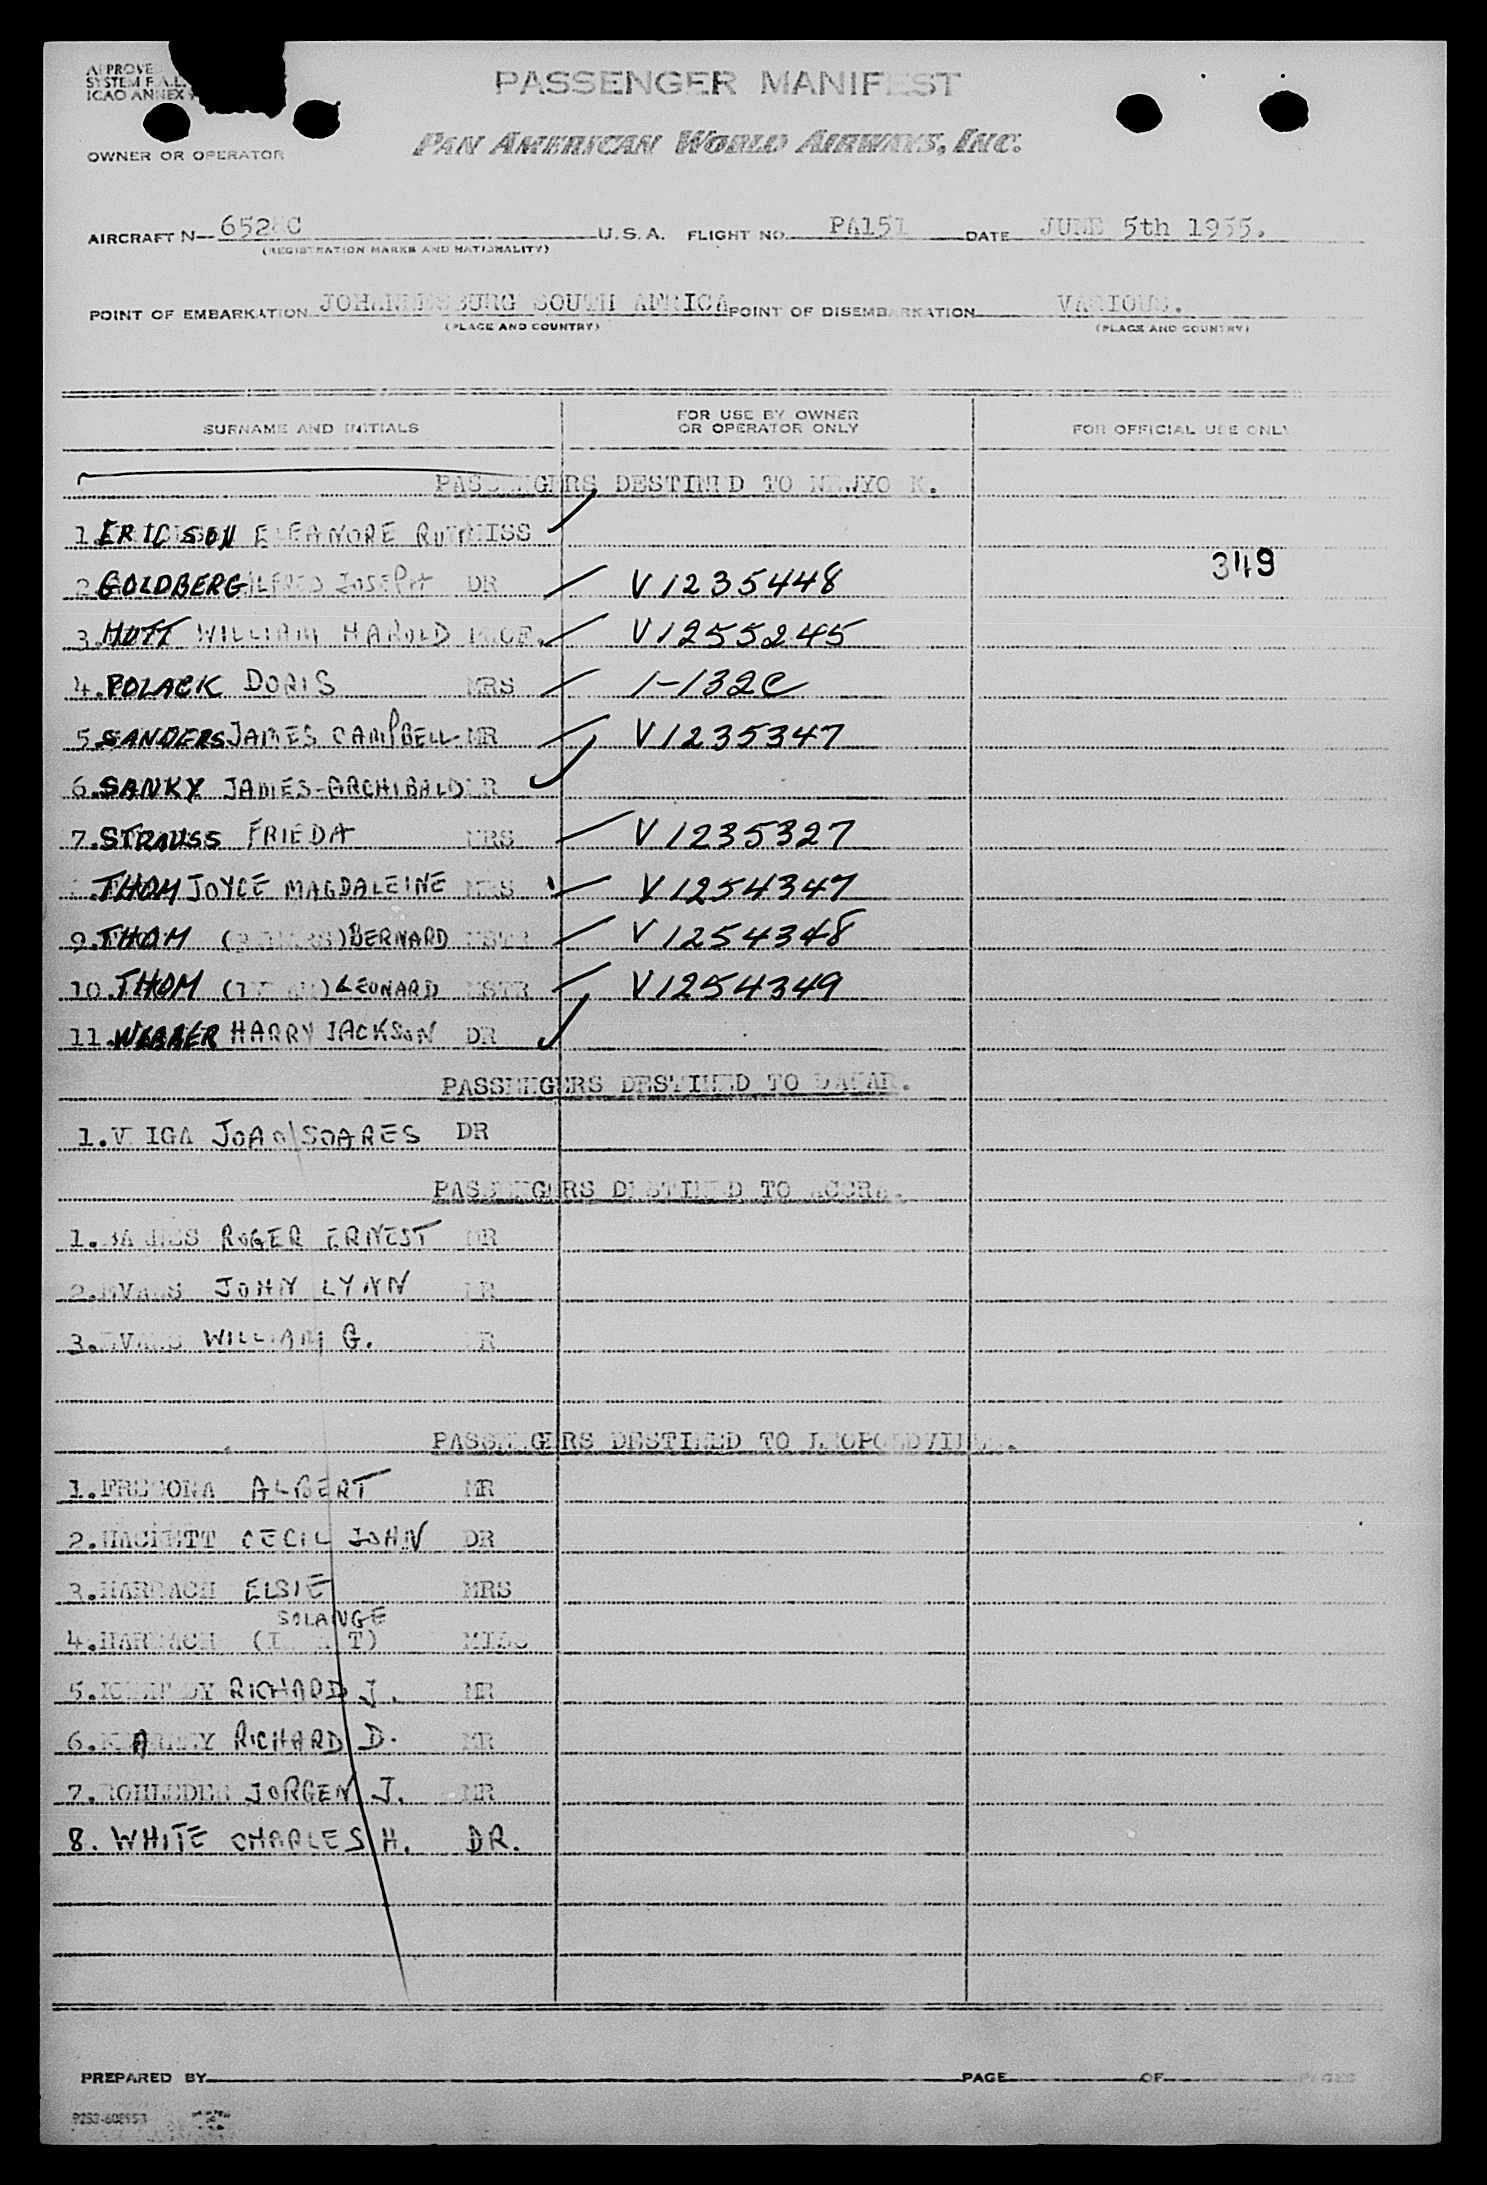 APPROVE
SYSTEM F.A.L.
ICAO ANNEX 9
PASSENGER MANIFEST
OWNER OR OPERATOR
PAN AMERICAN WORLD AIRWAYS, INC.
AIRCRAFT N— 652 C U.S.A. FLIGHT NO. PA151 DATE JUNE 5th 1955.
(REGISTRATION MARKS AND NATIONALITY)
POINT OF EMBARKATION JOHANNESBURG SOUTH AFRICA POINT OF DISEMBARKATION VARIOUS.
(PLACE AND COUNTRY) (PLACE AND COUNTRY)
SURNAME AND INITIALS FOR USE BY OWNER OR OPERATOR ONLY FOR OFFICIAL USE ONLY
PASSENGERS DESTINED TO NEWYORK.
1. ERICSON ELEANORE RUTH MISS
349
2. GOLDBERG ALFRED JOSEPH DR V1235448
3. HUTT WILLIAM HAROLD PROF. V1255245
4. POLACK DORIS MRS 1-132C
5. SANDERS JAMES CAMPBELL MR V1235347
6. SANKY JAMES-ARCHIBALD MR
7. STRAUSS FRIEDA MRS V1235327
THOM JOYCE MAGDALEINE MRS V1254347
9. THOM BERNARD MSTR V1254348
10. THOM LEONARD MSTR V1254349
11. WEBBER HARRY JACKSON DR
PASSENGERS DESTINED TO DAKAR.
1. VEIGA JOAO SOARES DR
PASSENGERS DESTINED TO ACCRA.
1. ROGER ERNEST MR
2. EVANS JOHN LYNN MR
3. EVANS WILLIAM G. MR
PASSENGERS DESTINED TO LEOPOLDVILLE.
1. ALBERT MR
2. HACKETT CECIL JOHN DR
3. HARBACH ELSIE MRS
SOLANGE
4. HARBACH (INFANT) MISS
5. KENNEDY RICHARD J. MR
6. RICHARD D. MR
7. ROHLEDER JORGEN J. MR
8. WHITE CHARLES H. DR.
PREPARED BY PAGE OF PAGES